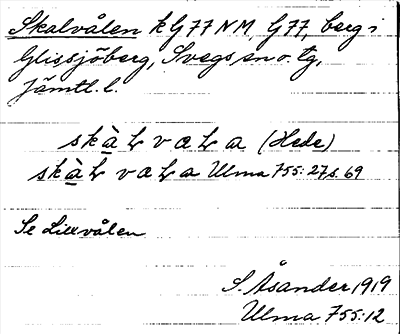 Skalvålen k G77 NM, G77, berg i
Glissjöberg, Svegs sn o. tg,
Jämtl. l.
skàL vaLa (Hede)
skàL vaLa Ulma 755:27 s. 69
Se Lillvålen
S. Åsander 1919
Ulma 755:12